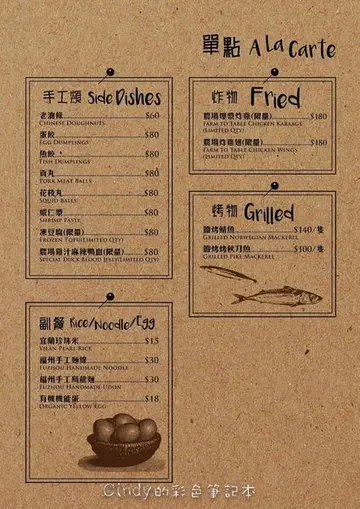 單點 A La Carte
手工類 Side Dishes
老油條 $60
Chinese Doughnuts
蛋餃 $80
Egg Dumplings
魚餃 $80
Fish Dumplings
貢丸 $80
Pork Meat Balls
花枝丸 $80
Squid Balls
蝦仁漿 $80
Shrimp Paste
凍豆腐(限量) $80
Frozen Tofu(Limited Qty)
農場雞汁麻辣鴨血(限量) $80
Special Duck Blood Jelly(Limited Qty)
炸物 Fried
農場爆漿炸雞(限量) $180
Farm to Table Chicken Karaage
(Limited Qty)
農場炸雞翅(限量) $180
Farm to Table Chicken Wings
(Limited Qty)
烤物 Grilled
鹽烤鯖魚 $140/隻
Grilled Norwegian Mackerel
鹽烤秋刀魚 $100/隻
Grilled Pike Mackerel
副餐 Rice/Noodle/Egg
宜蘭珍珠米 $15
Yilan Pearl Rice
福州手工麵線 $30
Fuzhou Handmade Noodle
福州手工烏龍麵 $30
Fuzhou Handmade Udon
有機機能蛋 $18
Organic Yellow Egg
Cindy的彩色筆記本